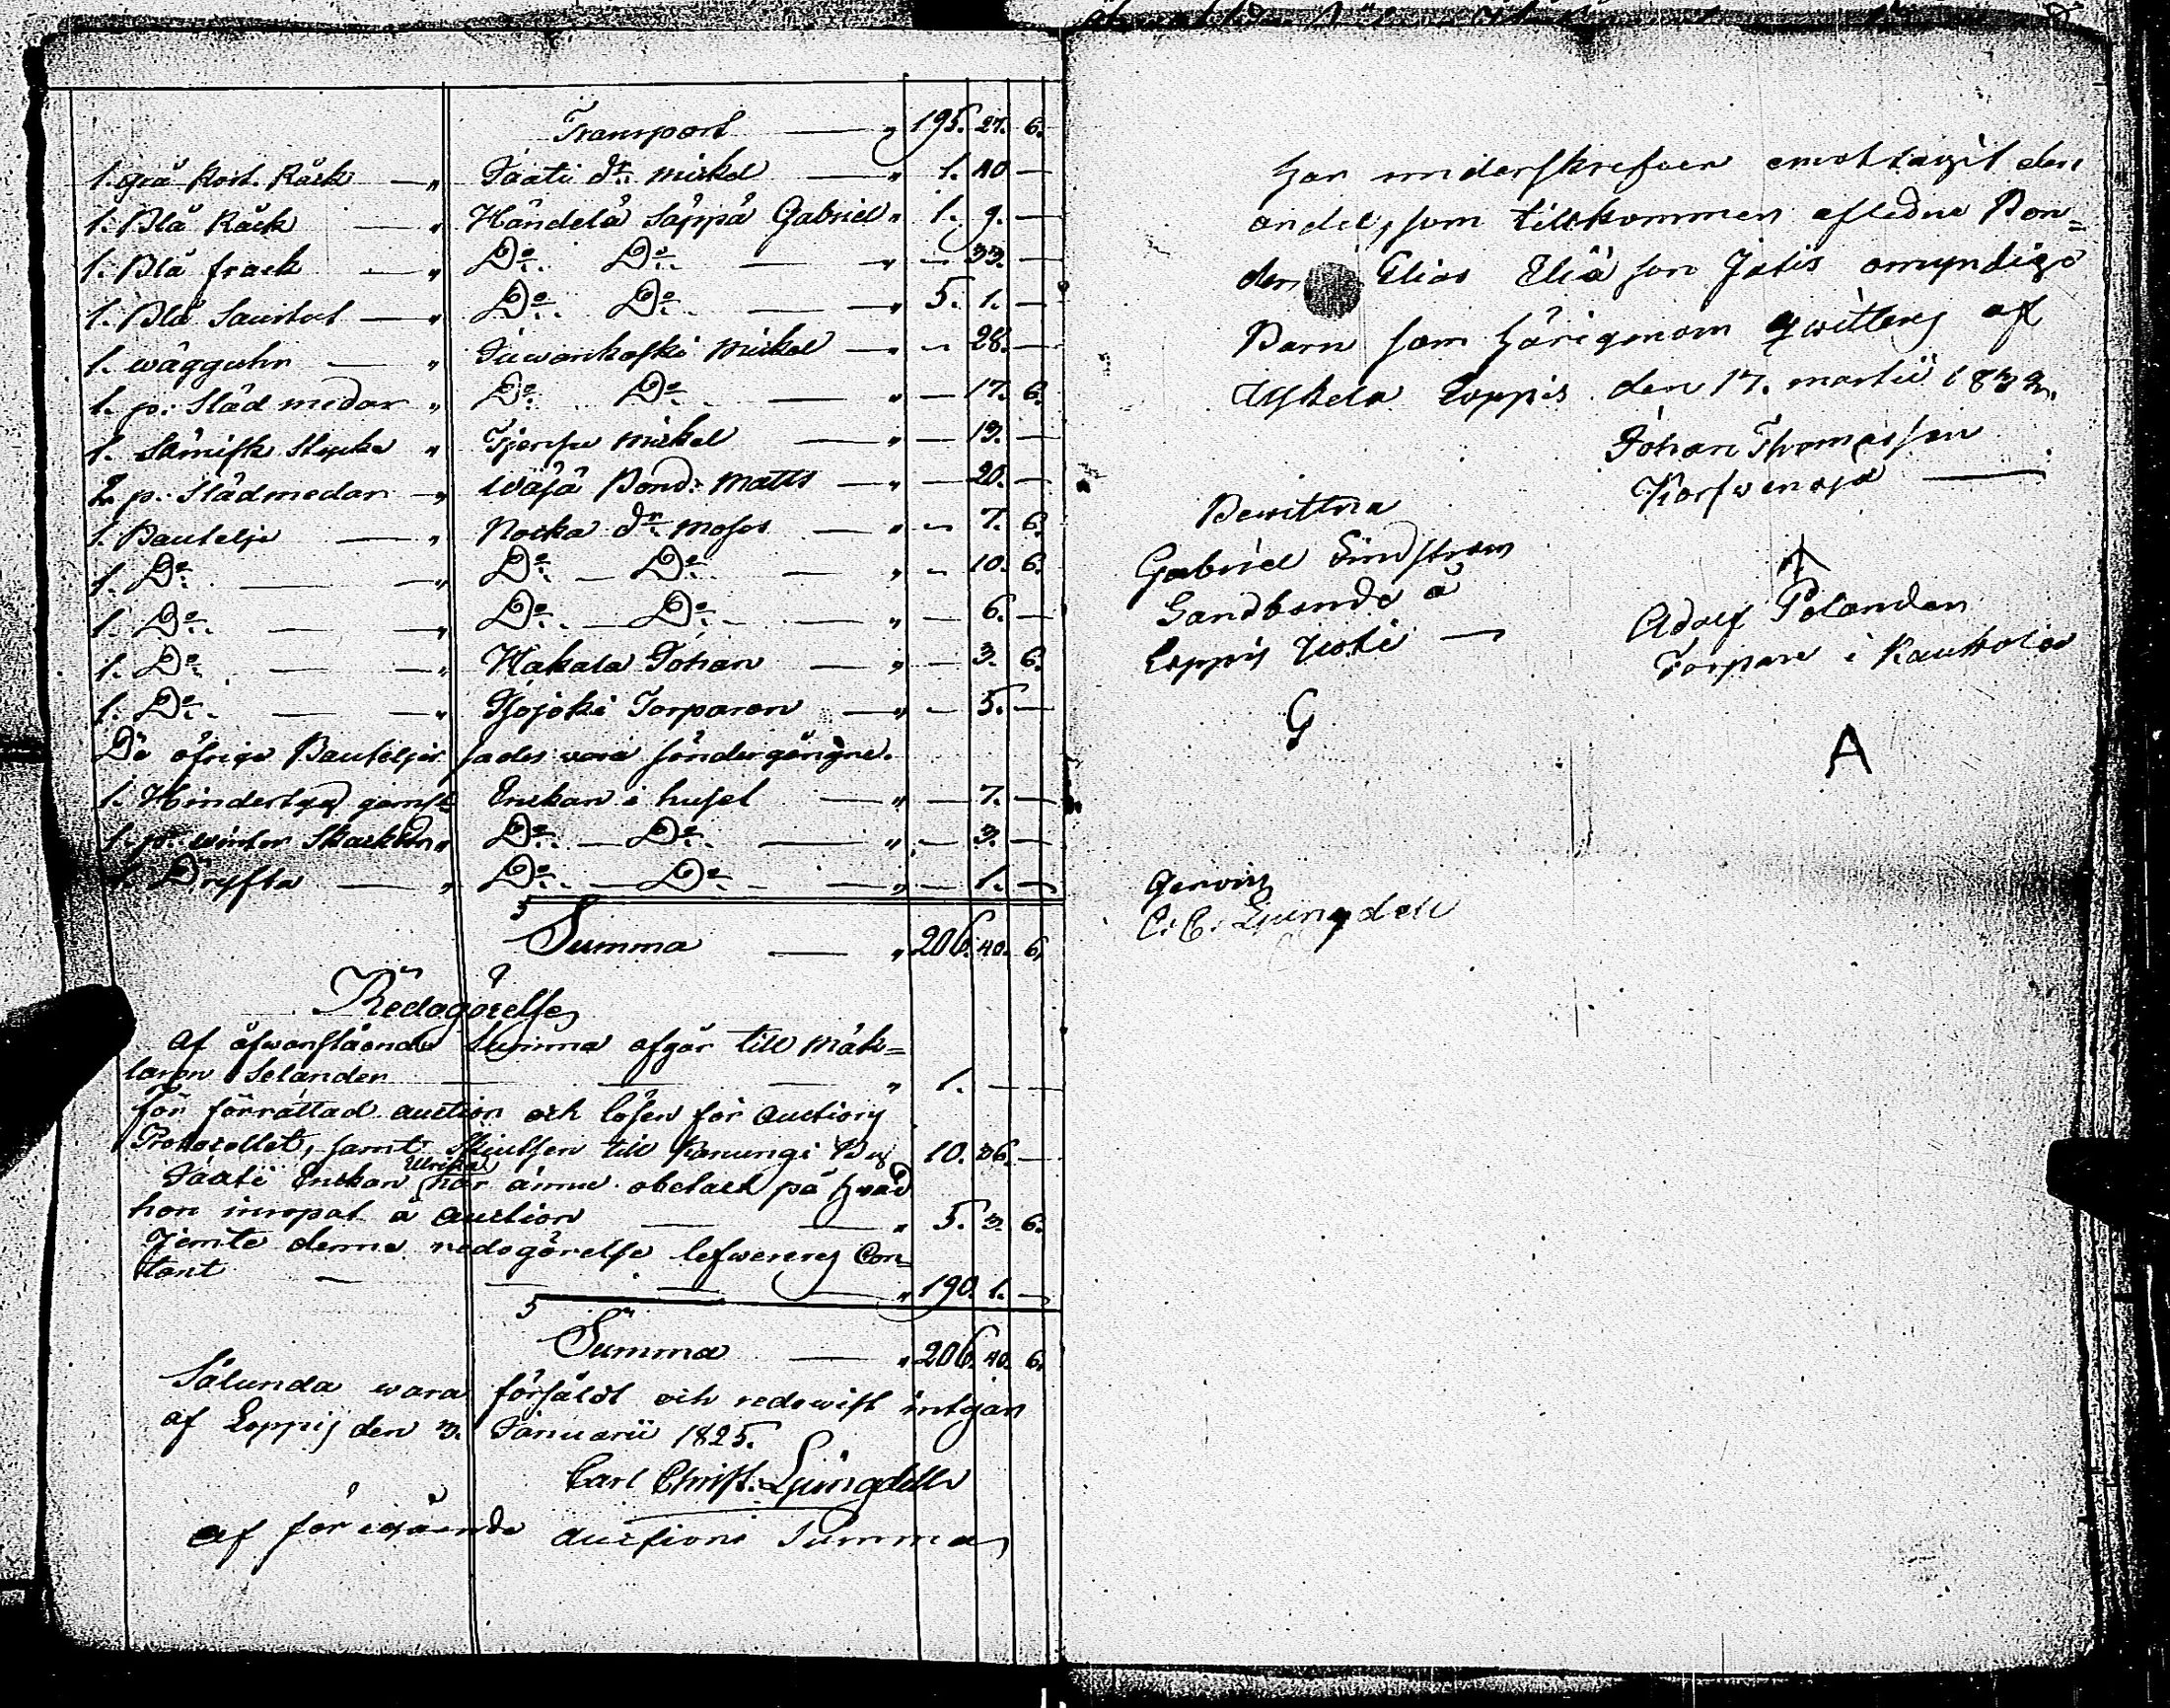 Transport — " 195. 27. 6.
1. grå kort. Råck — " Taati dr. Mickel — " 1. 40 —
1. Blå Råck — " Händelä Säppä Gabriel " 1. 9. —
1. Blå frack — " Do. Do. — " — 33. —
1. Blå Surtut — " Do. Do. — " 5. 1. —
1. wägguhr — " Mickel — " — 28. —
1. p. Släd medar " Do. Do. — " — 17. 6.
1. Sämisk stycke " Mickel — " — 13. —
2. p. Slädmedar — " Wäjä Bond. Matts — " — 20. —
1. Boutelje — " Nocka dn. Moses — " — 7. 6.
1. Do. — " Do. — Do. — " — 10. 6.
1. Do. — — " Do. — Do. — " — 6. —
1. Do. — — " Hakala Johan — " — 3. 6.
1. Do. — — " Torparen — " — 5. —
De öfrige Bouteljer sades vara söndergångne.
1. Enckan i huset — " — 7. —
1. p. winter " Do. — Do. — " — 3. —
1. Dryfta — " Do. — Do. — " — 1. —
Summa — " 206. 40. 6.
Redogörelse
Af ofwanstående Summa afgår till Mäk=
laren Selander — — — " 1. — —
för förrättad auction och lösen för Auctions
Protocollet, samt Skjutsen till 10. 36. —
Ulrika
Taati Enckan har ännu obetalt på hvad
hon inropat å Auction — — " 5. 3. 6.
Jemte denna redogörelse lefwereras Con=
tant — — — — " 190. 1. —
Summa — " 206. 40. 6.
Sålunda wara försåldt och redowist intygar
af Loppis den 3. Januarii 1825.
Carl Christ. Ljungdell
af föregående auctions Summa
har underskrefven emottagit den
andel, som tillkommer afledne Bon=
den Elias Eliä son Jatis omyndige
Barn som härigenom qwitteras af
Loppis den 17. martii 1833.
Johan Thomasson
Bewittna
Gabriel Lindström
Landbonde å
Loppis
G
Adolf Polander
Torpare i
A
C. C. Ljungdell